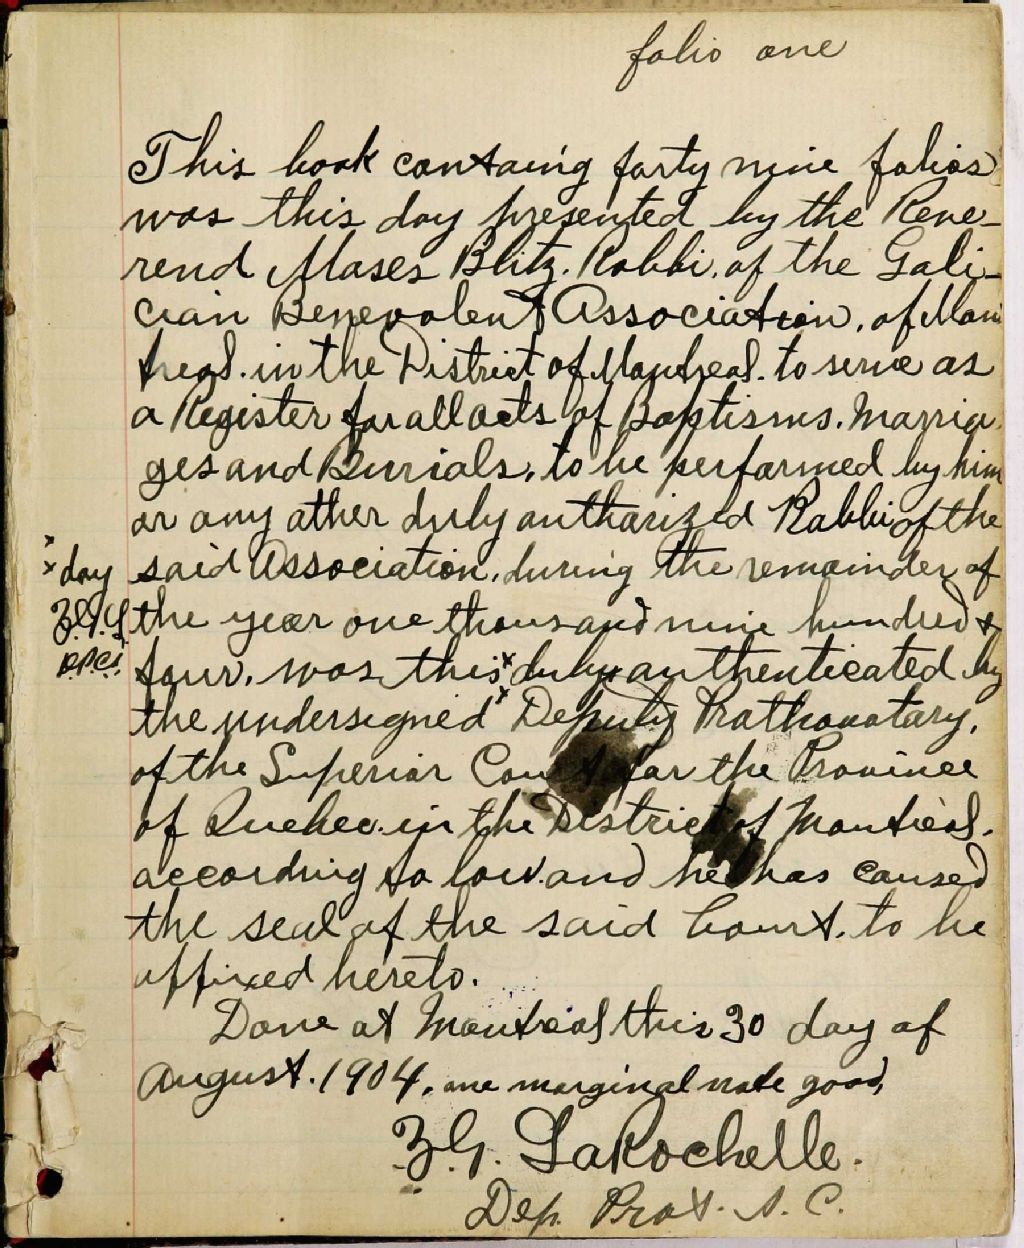 folio one
This book containg forty nine folios
was this day presented by the Reve-
rend Moses Blitz. Rabbi, of the Gali-
cian Benevolent Association, of Mon
treal. in the District of Montreal. to serve as
a Register for all acts of Baptisms. Marria
ges and Burials, to be performed by him
or any other duly authorized Rabbi of the
said Association, during the remainder of
the year one thousand nine hundred &
four, was this x duly authenticated by
the undersigned x Deputy Prothonotary,
of the Superior Court for the Province
of Quebec. in the District of Montreal.
according to law. and he has caused
the seal of the said Court. to be
affixed hereto.
Done at Montreal this 30 day of
August. 1904. one marginal note good,
Z.G. LaRochelle.
Dep. Prot. S. C.
x
x day
D.P.C.S.